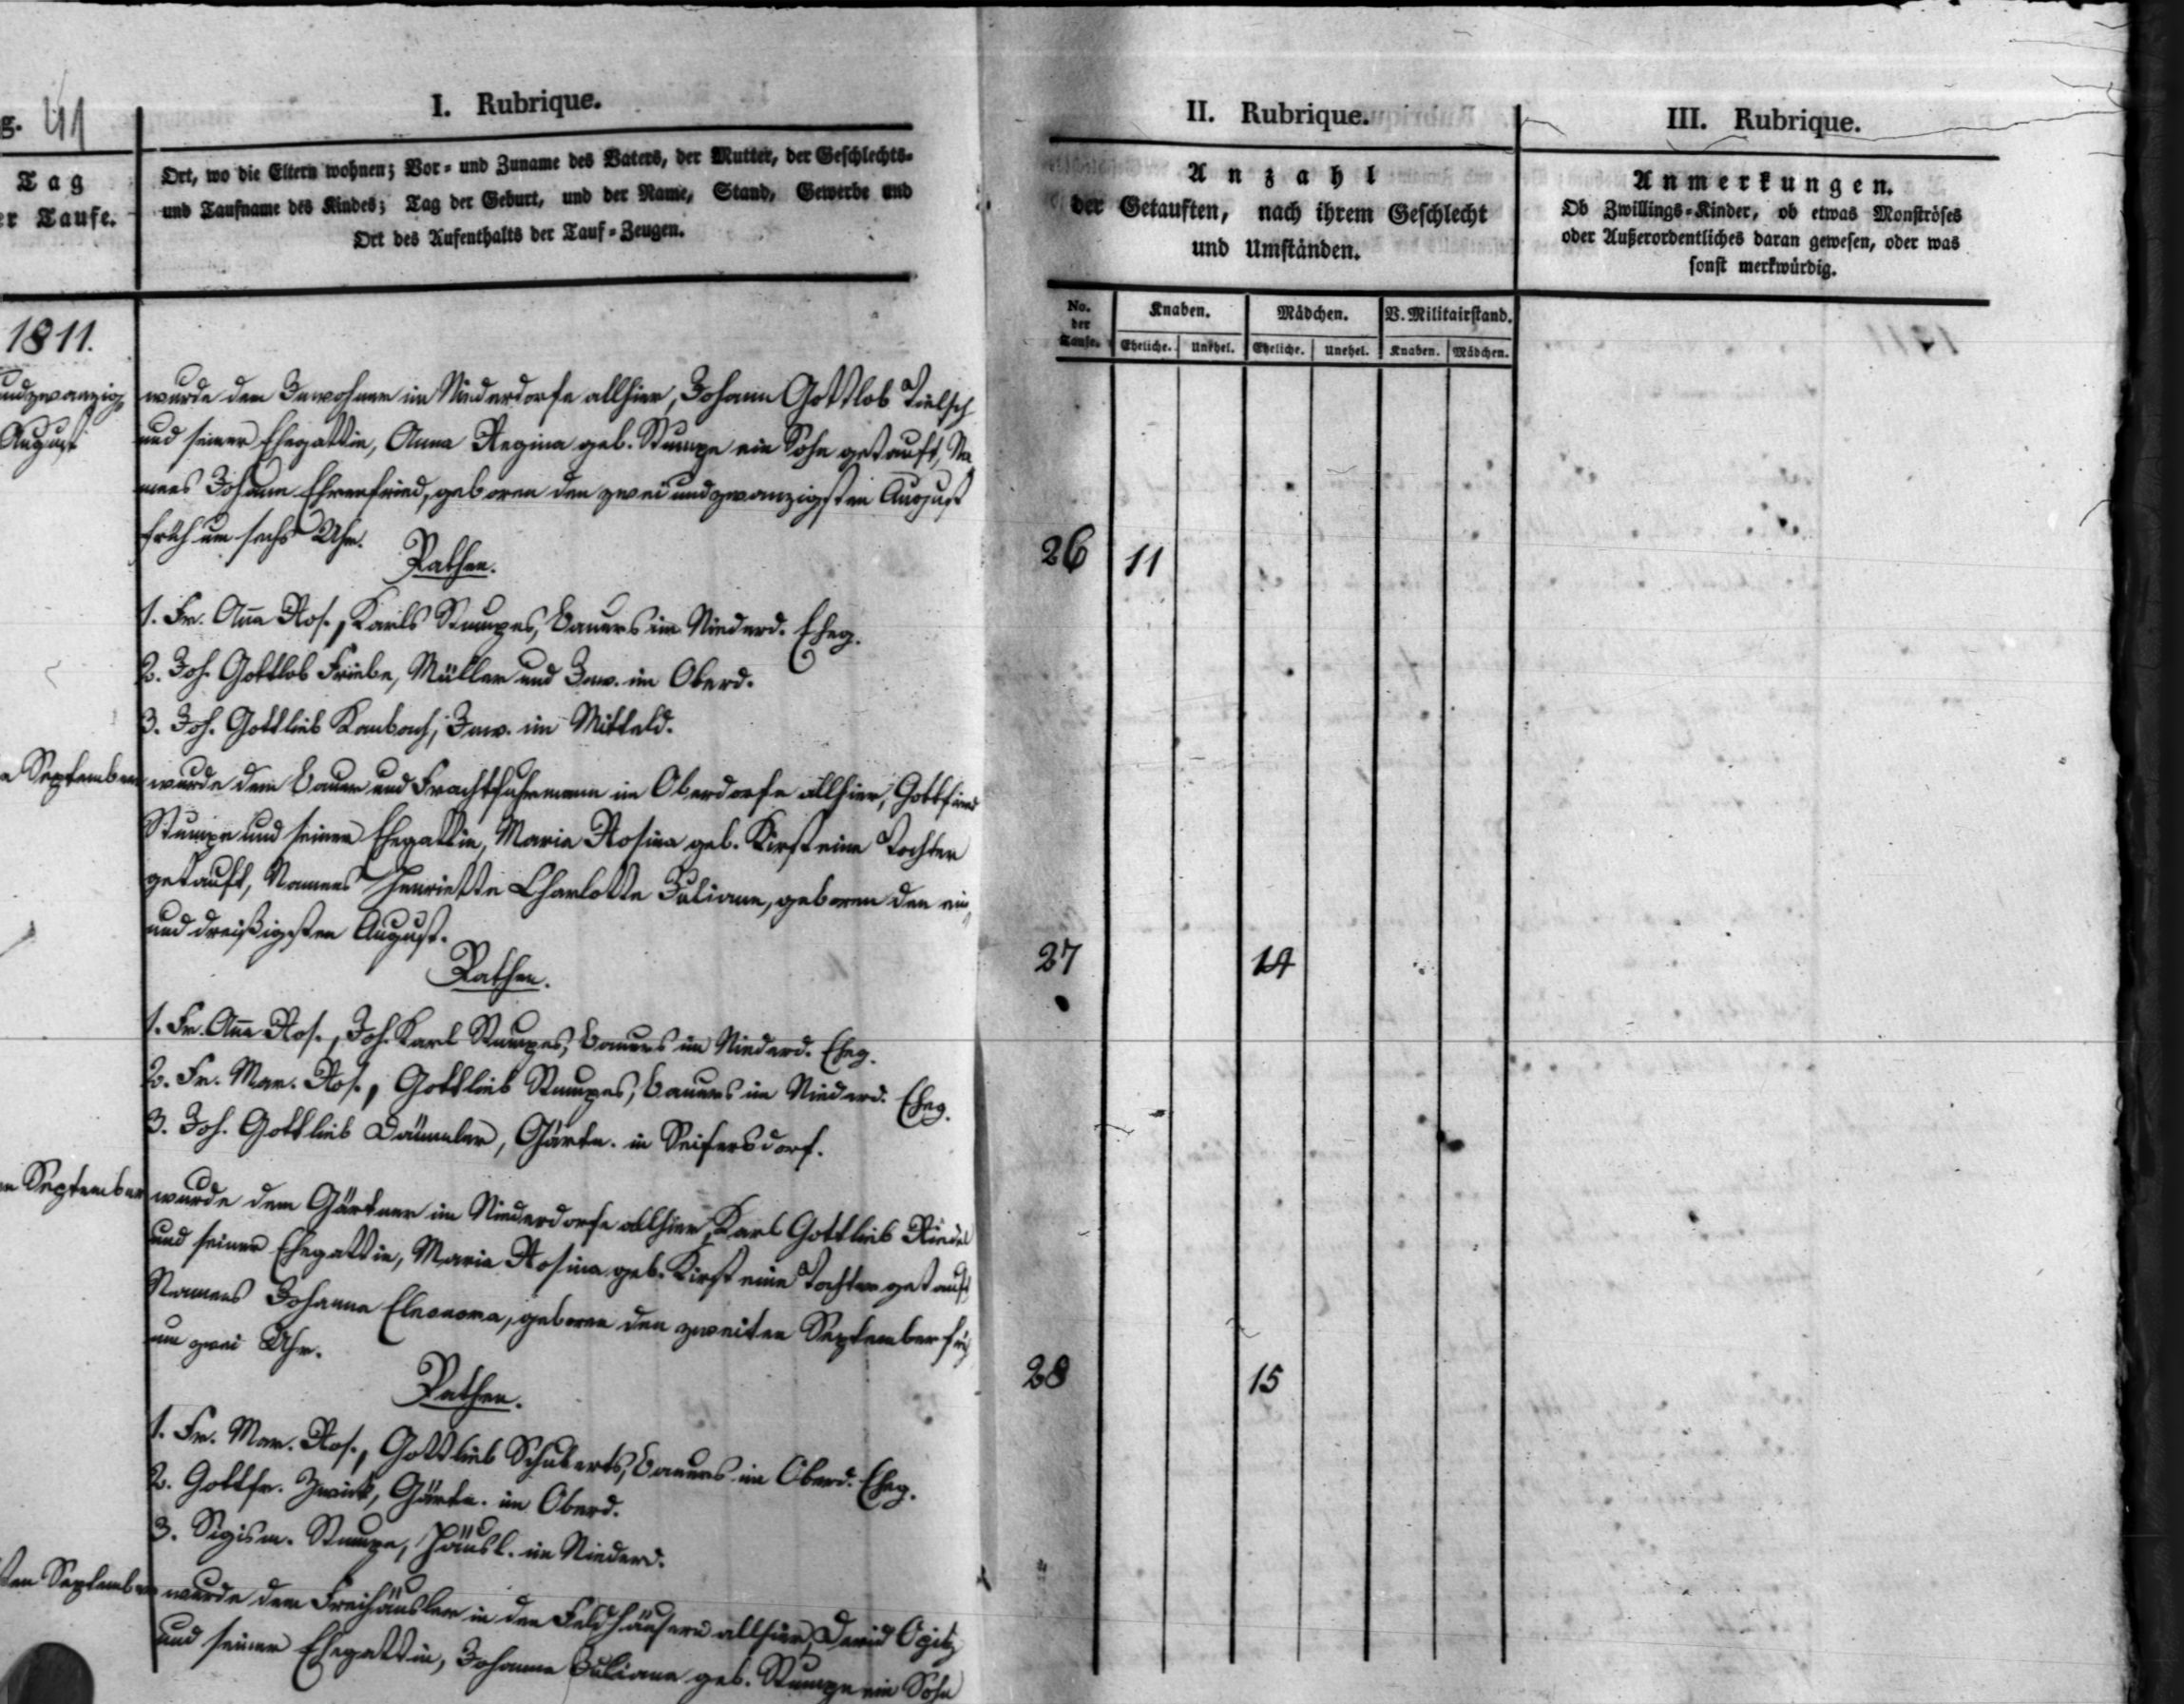 g. 41
I. Rubrique.
Tag
er Taufe.
Ort, wo die Eltern wohnen; Vor- und Zuname des Vaters, der Mutter, der Geschlechts-
und Taufname des Kindes; Tag der Geburt, und der Name, Stand, Gewerbe und
Ort des Aufenthalts der Tauf-Zeugen.
1811.
undzwanzig
August
wurde dem Inwohner im Niederdorfe allhier, Johann Gottlob Tielsch
und seiner Ehegattin, Anna Regina geb. Stumpe ein Sohn getauft, Na
mens Johann Ehrenfried, geboren den zweiundzwanzigsten August
früh um sechs Uhr.
Pathen.
1. Fr. Aña Ros., Karls Stumpes, Bauers im Niederd. Eheg.
2. Joh. Gottlob Friebe, Müller und Inw. im Oberd.
3. Joh. Gottlieb Kambach, Inw. im Mitteld.
n September
wurde dem Bauer und Frachtfuhrmann im Oberdorfe allhier, Gottfried
Stumpe und seiner Ehegattin, Maria Rosina geb. Kirst eine Tochter
getauft, Namens Henriette Charlotte Juliane, geboren den ein
und dreißigsten August.
Pathen.
1. Fr. Aña Ros., Joh. Karl Stumpes, Bauers im Niederd. Eheg.
2. Fr. Mar. Ros., Gottlieb Stumpes, Bauers im Niederd. Eheg.
3. Joh. Gottlieb Däumler, Gärtn. in Seifersdorf.
n September
wurde dem Gärtner im Niederdorfe allhier, Karl Gottlieb Riedel
und seiner Ehegattin, Maria Rosina geb. Kirst eine Tochter getauft
Namens Johanna Eleonora, geboren den zweiten September früh
um zwei Uhr.
Pathen.
1. Fr. Mar. Ros., Gottlieb Schuberts, Bauers im Oberd. Eheg.
2. Gottfr. Zwick, Gärtn. im Oberd.
3. Sigism. Stumpe, Häusl. im Niederd.
ten September
wurde dem Freihäusler in den Feldhäusern allhier, David Opitz
und seiner Ehegattin, Johanne Juliane geb. Stumpe ein Sohn
II. Rubrique.
Anzahl
der Getauften, nach ihrem Geschlecht
und Umständen.
No. der Taufe.
Knaben.
Mädchen.
V. Militairstand.
Eheliche. Unehel. Eheliche. Unehel. Knaben. Mädchen.
26 11
27 14
28 15
III. Rubrique.
Anmerkungen.
Ob Zwillings-Kinder, ob etwas Monströses
oder Außerordentliches daran gewesen, oder was
sonst merkwürdig.